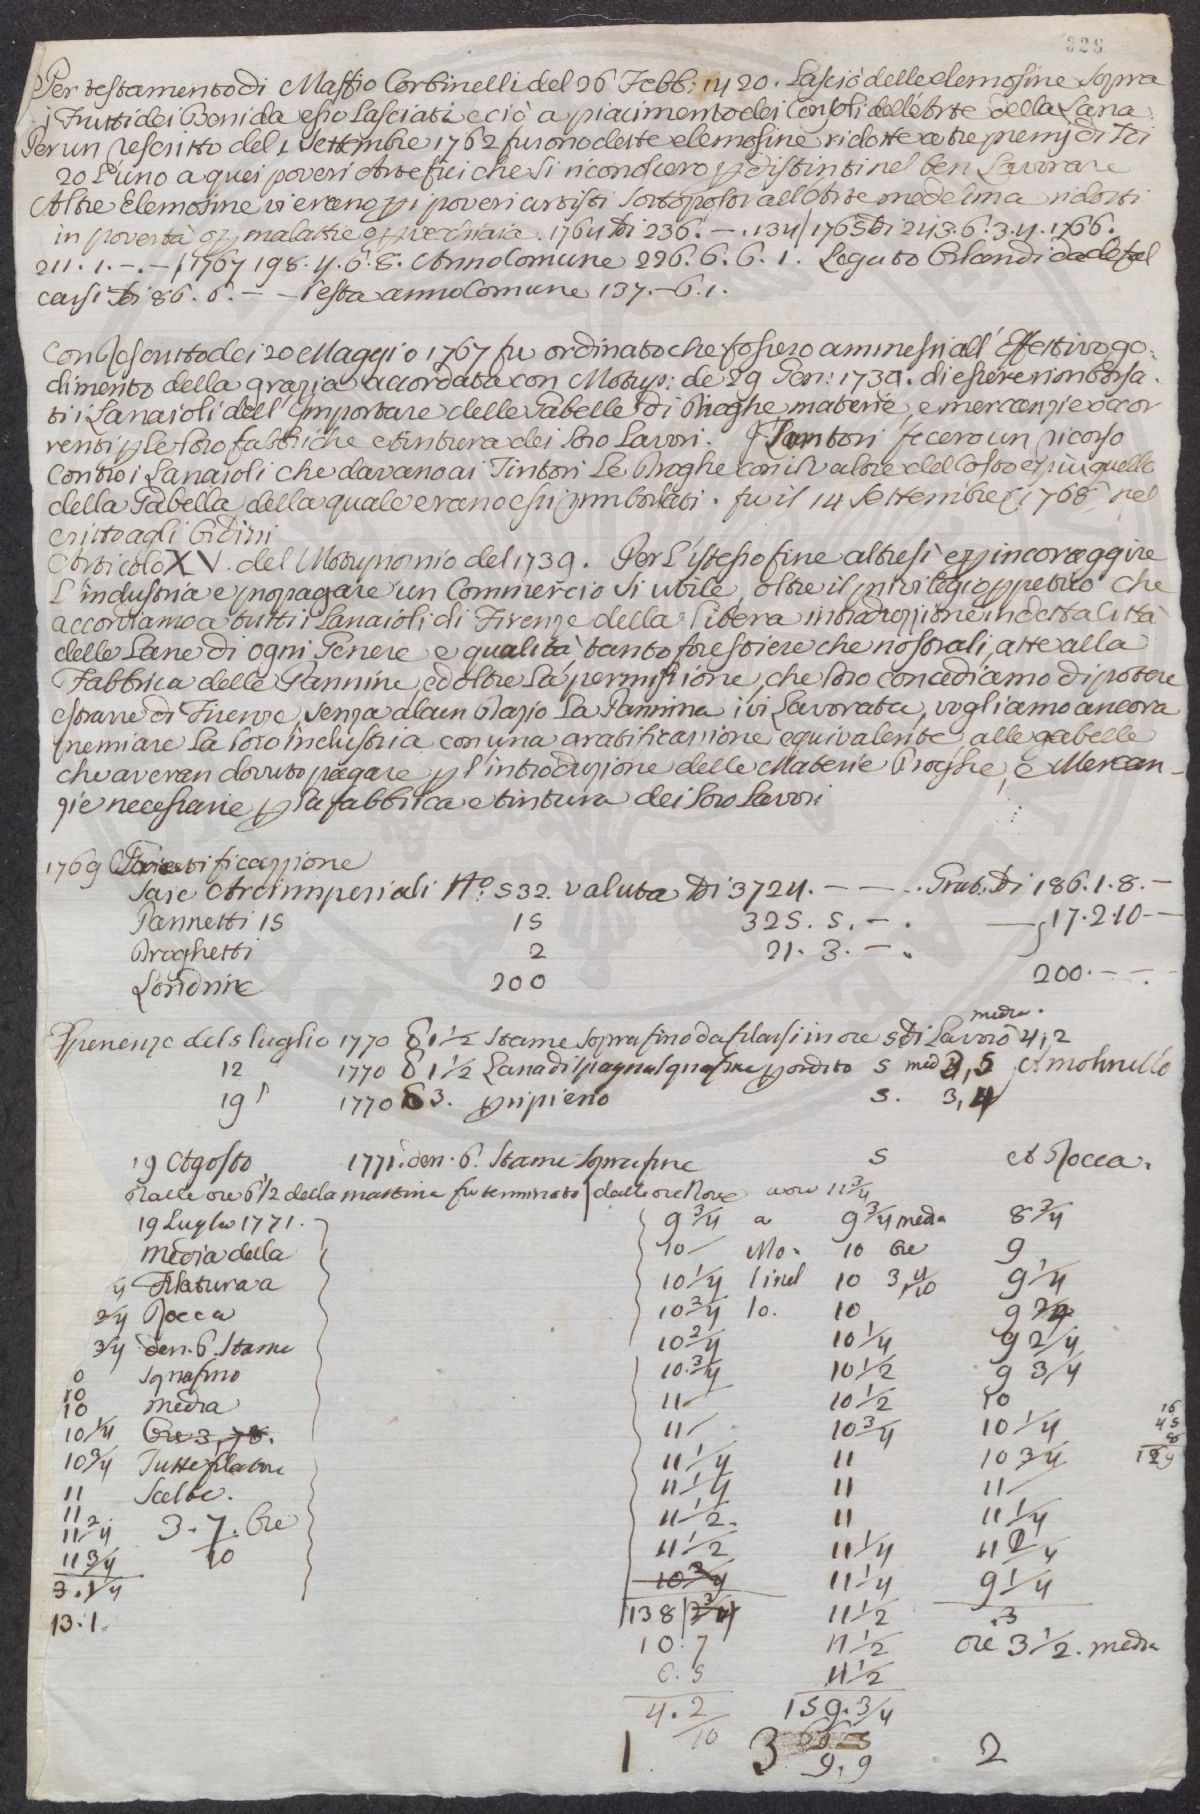 328
Per testamento di Maffio Corbinelli del 26 Febb: 1420. Lasciò delle elemosine sopra
i Frutti dei Beni da esso Lasciati e ciò a piacimento dei Consoli dell'Arte della Lana
Per un rescritto del 1 Settembre 1762 furono dette elemosine ridotte a tre premj di
20 L'uno a quei poveri Artefici che si riconoscero p distinti nel ben Lavorare
Altre Elemosine vi erano p i poveri artisti sottoposti all'Arte medesima ridotti
in povertà o p malattie o p vecchiaia. 1764 Di 236. —. 13 4/ 1765 Di 243. 6. 3. 4. 1766.
211. 1. —. — / 1767 198. 4. 6. 8. Anno Comune 226. 6. 6. 1. Legato Orlandi da
carsi Di 86. 6. — — resta anno Comune 137. — 6. 1.
Con Rescritto dei 20 Maggio 1767 fu ordinato che fossero ammessi all' Effettivo go-
dimento della grazia accordata con Motup: de 29 Gen: 1739. di essere rimborsa-
ti i Lanaioli dell' Importare delle Gabelle di Droghe, materie, e mercanzie occor
renti p le loro fabbriche e tintura dei loro Lavori. I Tintori fecero un ricorso
contro i Lanaioli che davano ai Tintori Le Droghe con il altre del Costo e più quello
della Gabella della quale erano essi rimborsati. fu il 14 Settembre 1768 rel
critto agli Ordini
Articolo XV. del Motuproprio del 1739. Per L'istesso fine altresì e p incoraggire
L'industria e propagare un Commercio sì utile, oltre il privilegio ppetuo che
accordiamo a tutti i Lanaioli di Firenze della libera introduzione in detta Città
delle Lane di ogni Genere e qualità tanto forestiere che nostrali, atte alla
Fabbrica delle Pannine, ed oltre La permissione, che loro concediamo di potere
estrarre di Firenze, senza alcun Dazio La Pannina ivi Lavorata, vogliamo ancora
premiare La loro industria con una gratificazione equivalente, alle gabelle
che averan dovuto pagare p l'introduzione delle Materie Droghe, e Mercan-
zie necessarie p la fabbrica e tintura dei loro Lavori
1769 Gratificazzione
Saie Arcimperiali N.º 532. valuta Di 3724. — — —. Grat. Di 186. 1. 8. —
Pannetti 15 15 325. 5. —. — 17. 2. 10 —
Droghetti 2 21. 3. —.
Londrine 200 200. — —.
Esperienze del 5 luglio 1770 1 ½ Stame soprafino da filarsi in ore 5 di Lavoro media. 4,2
12 1770 1 ½ Lana di Spagna p ordito 5 med 3,5 A molinello
19 1770 3. p ripieno 5. 3,4
19 Agosto 1771. den. 6. Stame soprafine 5 A Rocca.
Dalle ore 6 ½ della mattina fu terminato dalle ore Nove a ore 11 ¾
19 Luglio 1771. 9 ¾ a 9 ¾ media 8 ¾
media della 10 Mo- 10 Ore 9
4 Filatura a 10 ¼ linel 10 3 4/10 9 ¼
¾ Rocca 10 2/4 lo. 10 9 2/4
¾ den. 6. Stame 10 2/4 10 ¼ 9 2/4
0 soprafino 10. ¾ 10 ½ 9 ¾
10
10 media 11 10 ½ 10
10 ¼ Ore 3, 11 10 ¾ 10 ¼
10 ¾ Tutte filatore 11 ¼ 11 10 ¾
11 Scelte. 11 ¼ 11 11
11 2/4 3. 7/10. Ore 11 ½. 11 11 ¼
11 ¾ 11 ½ 11 ¼ 11 2/4
3. ¼ 10 ¾ 11 ¼ 9 ¼
13. 1. 138 11 ½ .3
10. 7 11 ½ Ore 3 ½. media
6. 5 11 ½
4. 2/10 159. ¾
9. 9
1 3 2
16
45
8
129